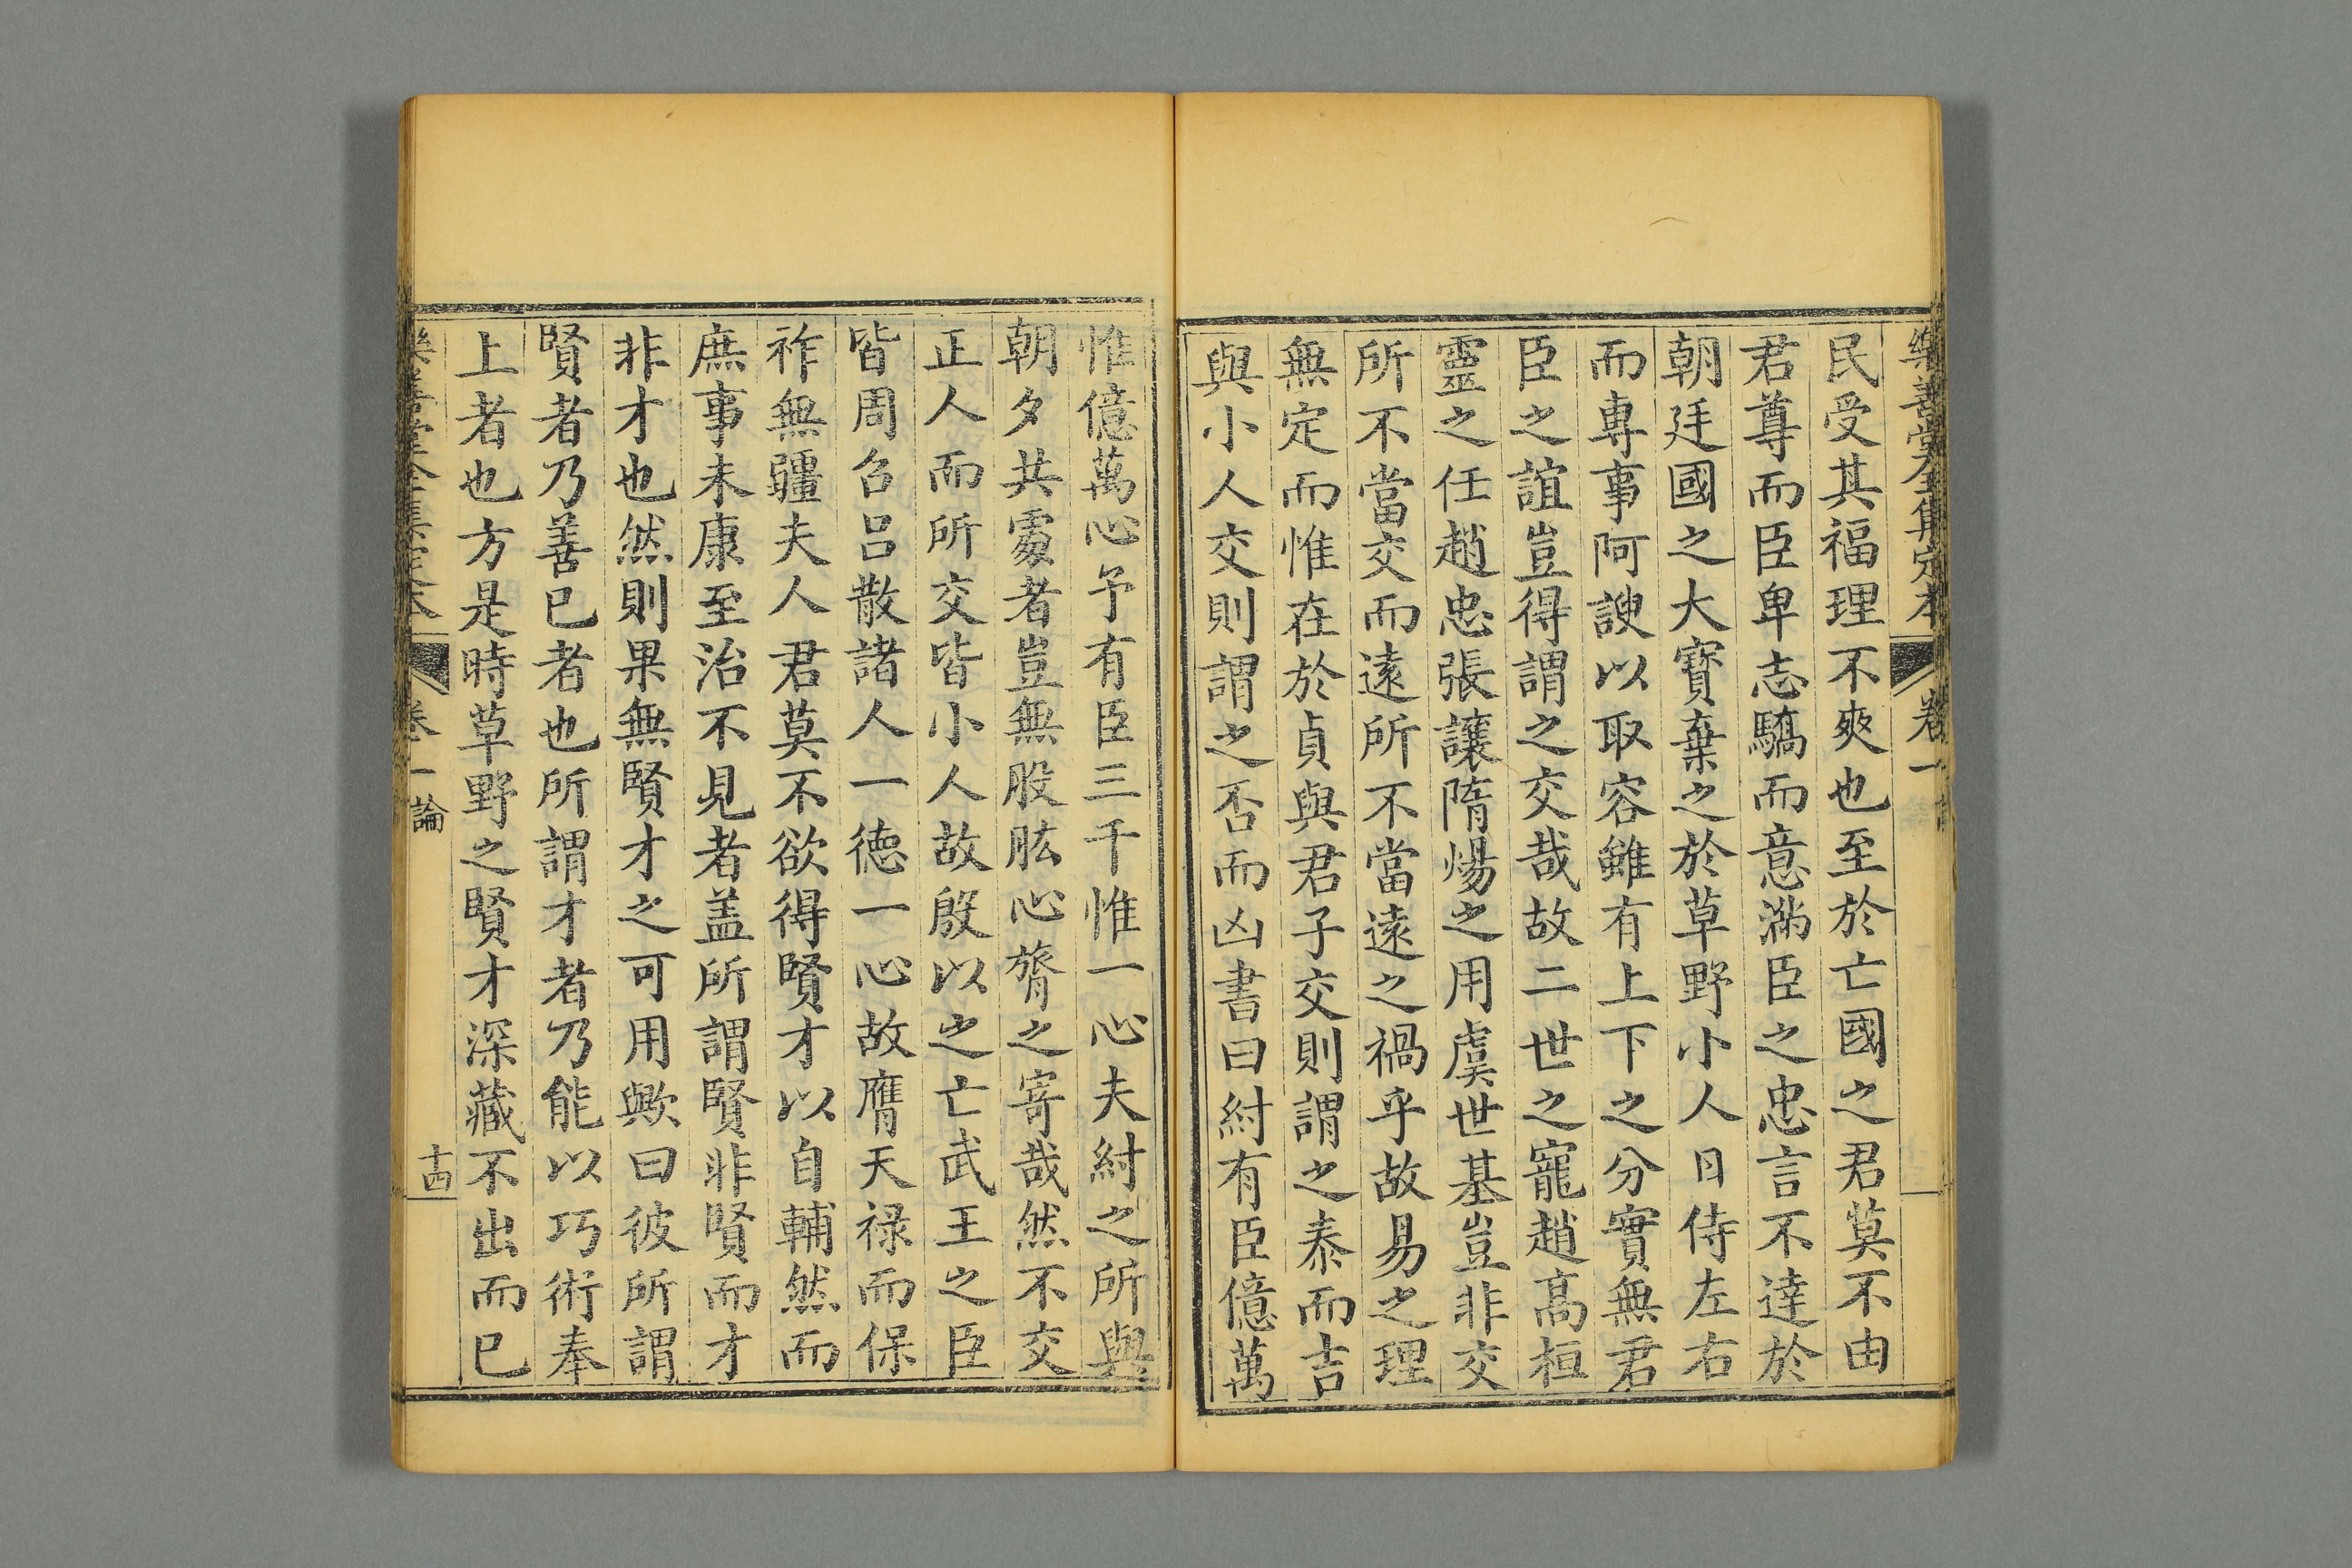 樂善堂全集定本 卷一
民受其福理不爽也至於亡國之君莫不由
君尊而臣卑志驕而意滿臣之忠言不達於
朝廷國之大寶棄之於草野小人日侍左右
而專事阿諛以取容雖有上下之分實無君
臣之誼豈得謂之交哉故二世之寵趙高桓
靈之任趙忠張讓隋煬之用虞世基豈非交
所不當交而遠所不當遠之禍乎故易之理
無定而惟在於貞與君子交則謂之泰而吉
與小人交則謂之否而凶書曰紂有臣億萬
惟億萬心予有臣三千惟一心夫紂之所與
朝夕共處者豈無股肱心膂之寄哉然不交
正人而所交皆小人故殷以之亡武王之臣
皆周召呂散諸人一德一心故膺天祿而保
祚無疆夫人君莫不欲得賢才以自輔然而
庶事未康至治不見者盖所謂賢非賢而才
非才也然則果無賢才之可用歟曰彼所謂
賢者乃善已者也所謂才者乃能以巧術奉
上者也方是時草野之賢才深藏不出而已
樂善堂全集定本 卷一 論 十四